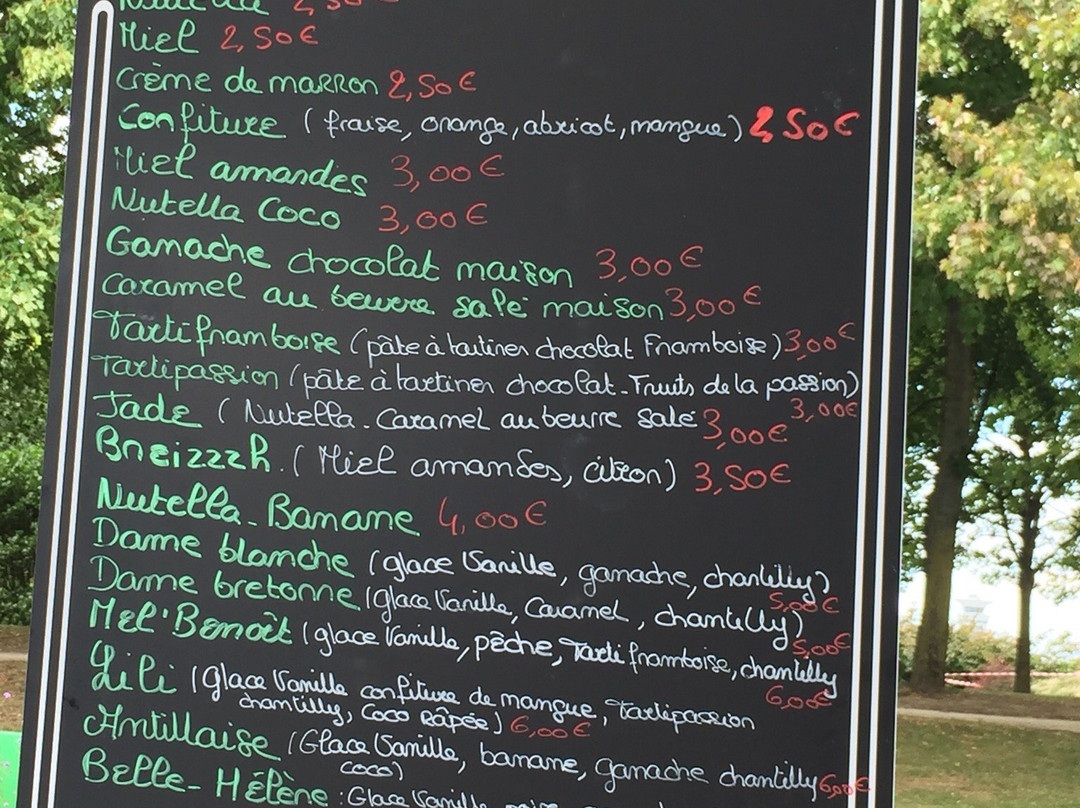 Nutella 2,50€
Miel 2,50€
Crème de marron 2,50€
Confiture (fraise, orange, abricot, mangue) 2,50€
Miel amandes 3,00€
Nutella Coco 3,00€
Ganache chocolat maison 3,00€
Caramel au beurre salé maison 3,00€
Tartiframboise (pâte à tartiner chocolat Framboise) 3,00€
Tartipassion (pâte à tartiner chocolat-Fruits de la passion)
3,00€
Jade (Nutella-Caramel au beurre salé 3,00€
Breizzzh.(Miel amandes, citron) 3,50€
Nutella-Banane 4,00€
Dame blanche (glace Vanille, ganache, chantilly)
5,00€
Dame bretonne (glace Vanille, Caramel, chantilly)
5,00€
Mel'Benoît (glace Vanille, pêche, Tartiframboise, chantilly
6,00€
Lili (Glace Vanille confiture de mangue, Tartipassion
chantilly, Coco Râpée) 6,00€
Antillaise (Glace Vanille, banane, ganache chantilly 6,00€
coco)
Belle-Hélène : Glace Vanille